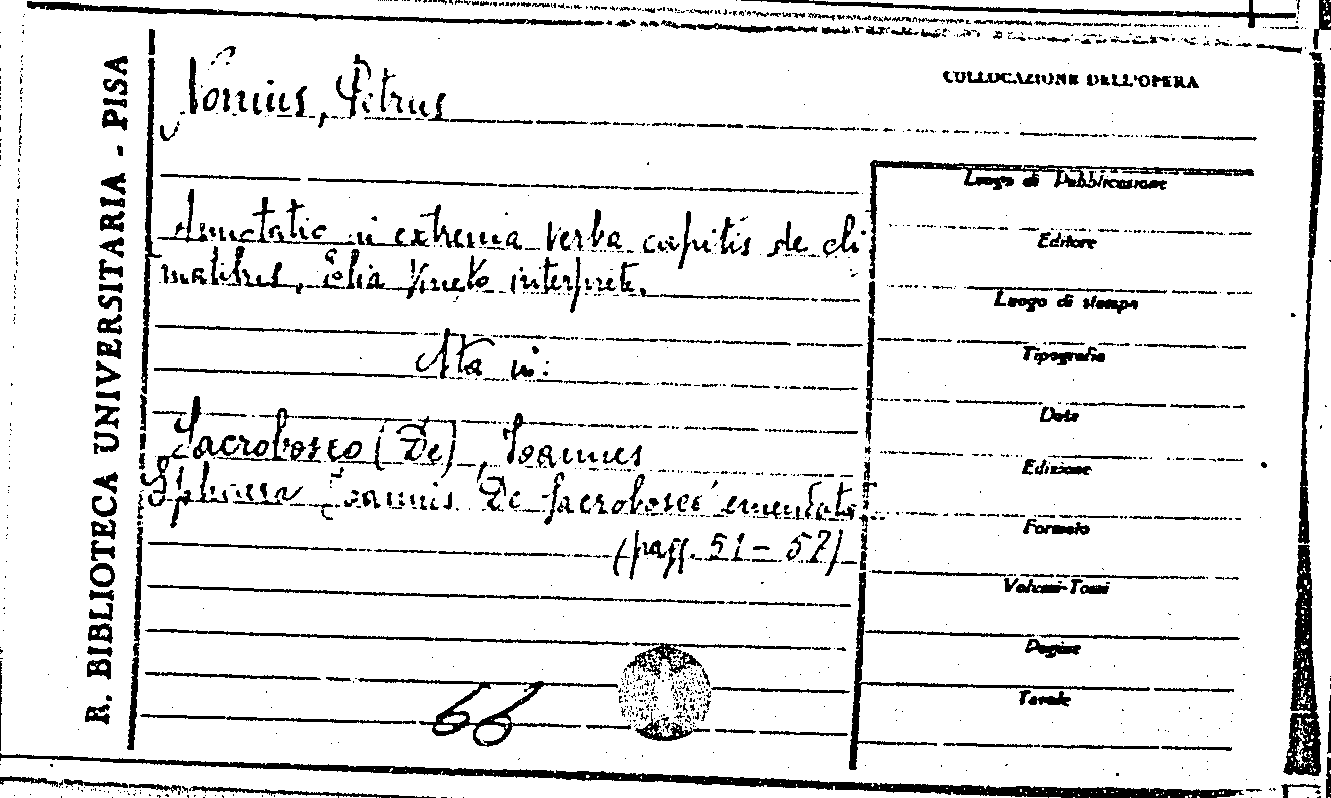 R. BIBLIOTECA UNIVERSITARIA - PISA
COLLOCAZIONE DELL'OPERA
Nonius, Petrus
Annotatio in extrema verba capitis de cli
matibus, Elia Vineto interprete.
Sta in:
Sacrobosco (De), Joannes
Sphaera Joannis De Sacrobosco emendata
(pagg. 51-57)
66
Luogo di Pubblicazione
Editore
Luogo di stampa
Tipografia
Data
Edizione
Formato
Volumi-Tomi
Pagine
Tavole